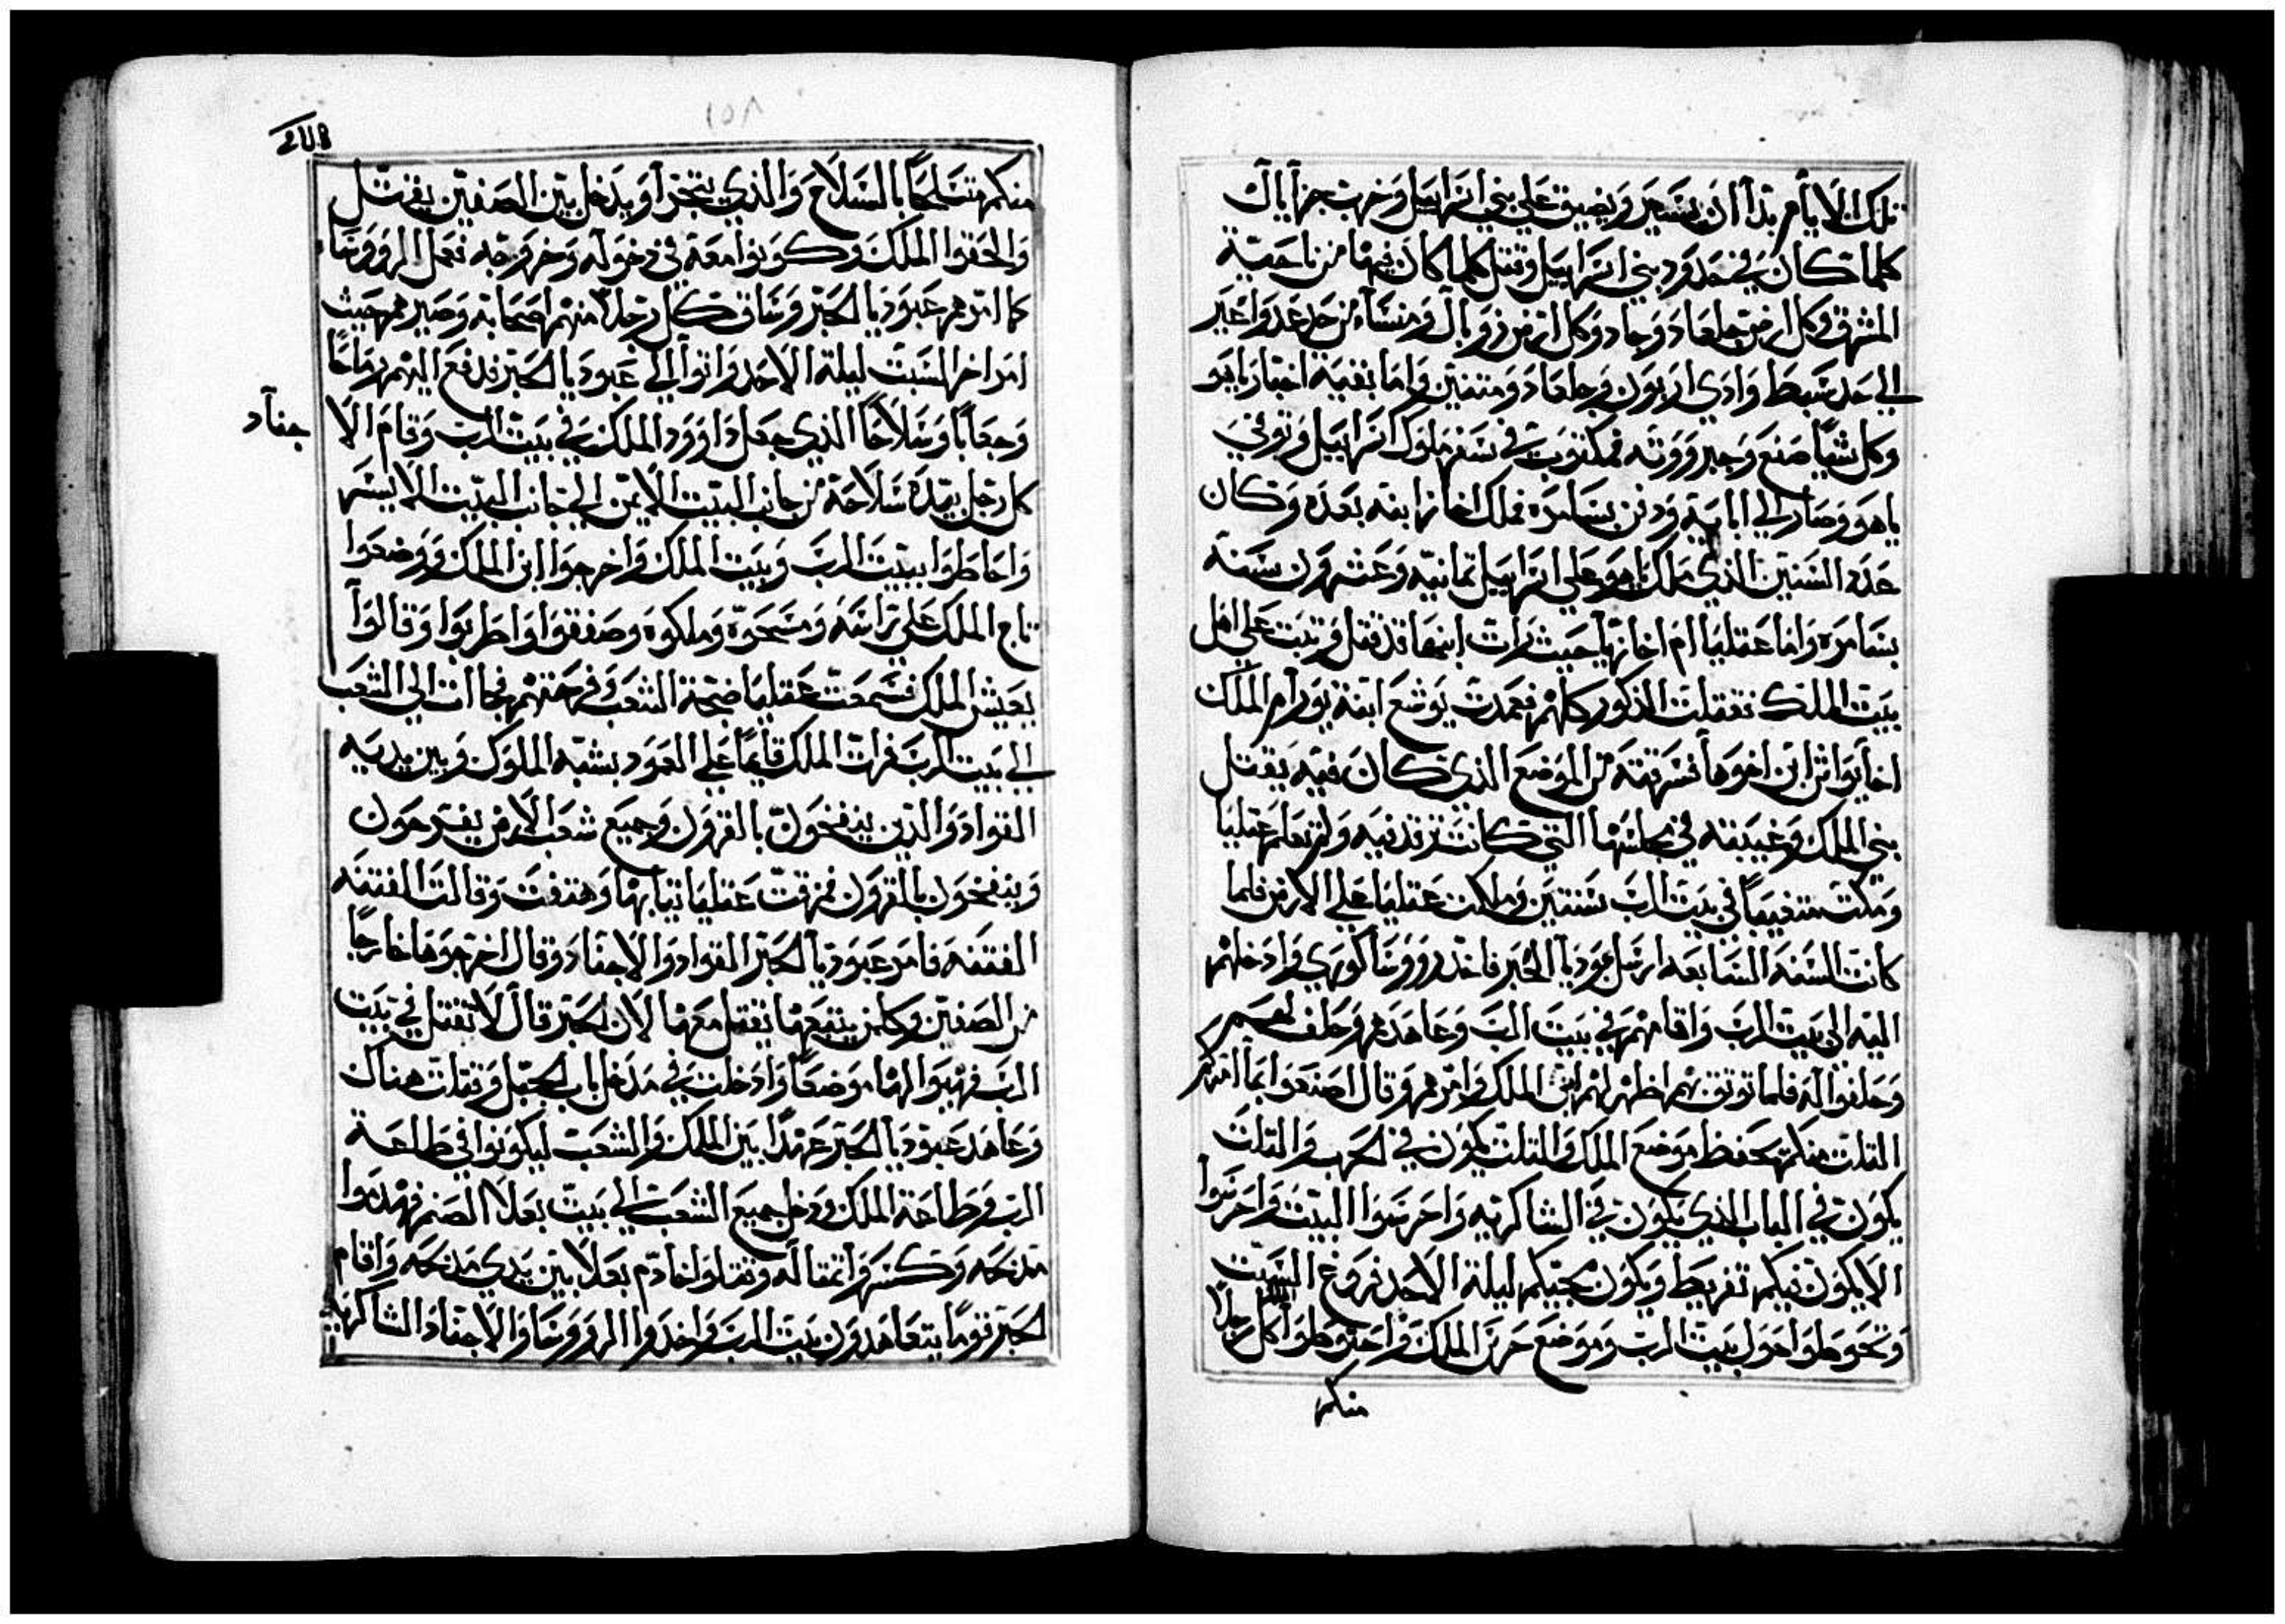 تلك الايام بدا الرب يسجر ويضيق علي بني اسراييل وخرب جزاياك
كلما كان في حدود بني اسراييل وقتل كلما كان فيها من ناحية
المشرق وكل ارض جلعاد وجاد وكل ارض زوبال ومنسا من حد عدواعير
الي حد شط وادي اربون وجلعاد ومتنين واما بقية اخبار ياهو
وكل شيا صنع وجبروته فمكتوب في سفر ملوك اسراييل وتوفي
ياهو وصار الي ابايه ودفن بسامره فملك اخازابنه بعده وكان
عدد السنين الذي ملك ياهو علي اسراييل تمانيه وعشرون سنه
بسامره واما عتليا ام اخازيا حيث رات ابنها قد قتل وتبت علي اهل
بيت الملك فقتلت الذكور كلهم فعمدت يوشع ابنة يورام الملك
اخذ يواش ابن اخوها فسرقته من الموضع الذي كان فيه يقتل
بني الملك وغيبته في مجلسها التي كانت ترقد فيه ولم تعلم عتليا
ومكت متغيبا في بيت الرب سنتين وملكت عتليا علي الارض فلما
كانت السنه السابعه ارسل عبوديا الحبر فاخذ رووسا كوري وادخلهم
اليه الي بيت الرب واقامهم في بيت الرب وعاهدهم وحلف لهم
وحلفوا له فلما توتق بهم اظهر لهم ابن الملك وامرهم وقال اصنعوا بما امركم
التلت منكم تحفظ موضع الملك والتلت يكون في الحرب والتلت
يكون في الباب الذي يكون في الشاكريه واحرسوا البيت واحرسوا
الا يكون فيكم تفريط ويكون مجيكم ليلة الاحد فروغ السبت
وتحوطوا حول بيت الرب وموضع حرس الملك واحتوطوا كل رجلا
منكم
منكم متسلحا بالسلاح والذي يتجرا ويدخل بين الصفين يقتل
والحقوا الملك وكونوا معه في دخوله وخروجه ففعل الرووسا
كما امرهم عبوديا الحبر وساق كل رجلا منهم اصحابه وصيرهم حيث
امر اخر السبت ليلة الاحد واتوا الي عبوديا الحبر فدفع اليهم رماحا
وجعابا وسلاحا الذي جعل داوود الملك في بيت الرب وقام الا
جناد
كل رجل بيده سلاحه من جانب البيت الايمن الي جانب البيت الايسر
واحاطوا ببيت الرب وبيت الملك واخرجوا ابن الملك ووضعوا
تاج الملك علي راسه ومسحوه وملكوه وصفقوا واطربوا وقالوا
يعيش الملك فسمعت عتليا ضجة الشعب وفرحتهم فجاات الي الشعب
الي بيت الرب فرات الملك قايما علي العمود بشبه الملوك وبين يديه
القواد والدين ينفخون بالقرون وجميع شعب الارض يفرحون
وينفخون بالقرون فمزقت عتليا تيابها وهتفت وقالت الفتنه
الفتنه فامر عبوديا الحبر القواد والاجناد وقال اخرجوها خارجا
من الصفين وكلمن يتبعها يقتل معها لان الحبر قال لا تقتل في بيت
الرب فهيوا لها موضعا وادخلت في مدخل باب الخيل وقتلت هناك
وعاهد عبوديا الحبر عهدا بين الملك والشعب ليكونوا في طاعة
الرب وطاعة الملك ودخل جميع الشعب الي بيت بعلا الصنم فهدموا
مدبحه وكسروا تمتاله وقتلوا خادم بعلا بين يدي مدبحه واقام
الحبر قوما يتعاهدون بيت الرب واخدوا الرووسا والاجناد الشاكريه